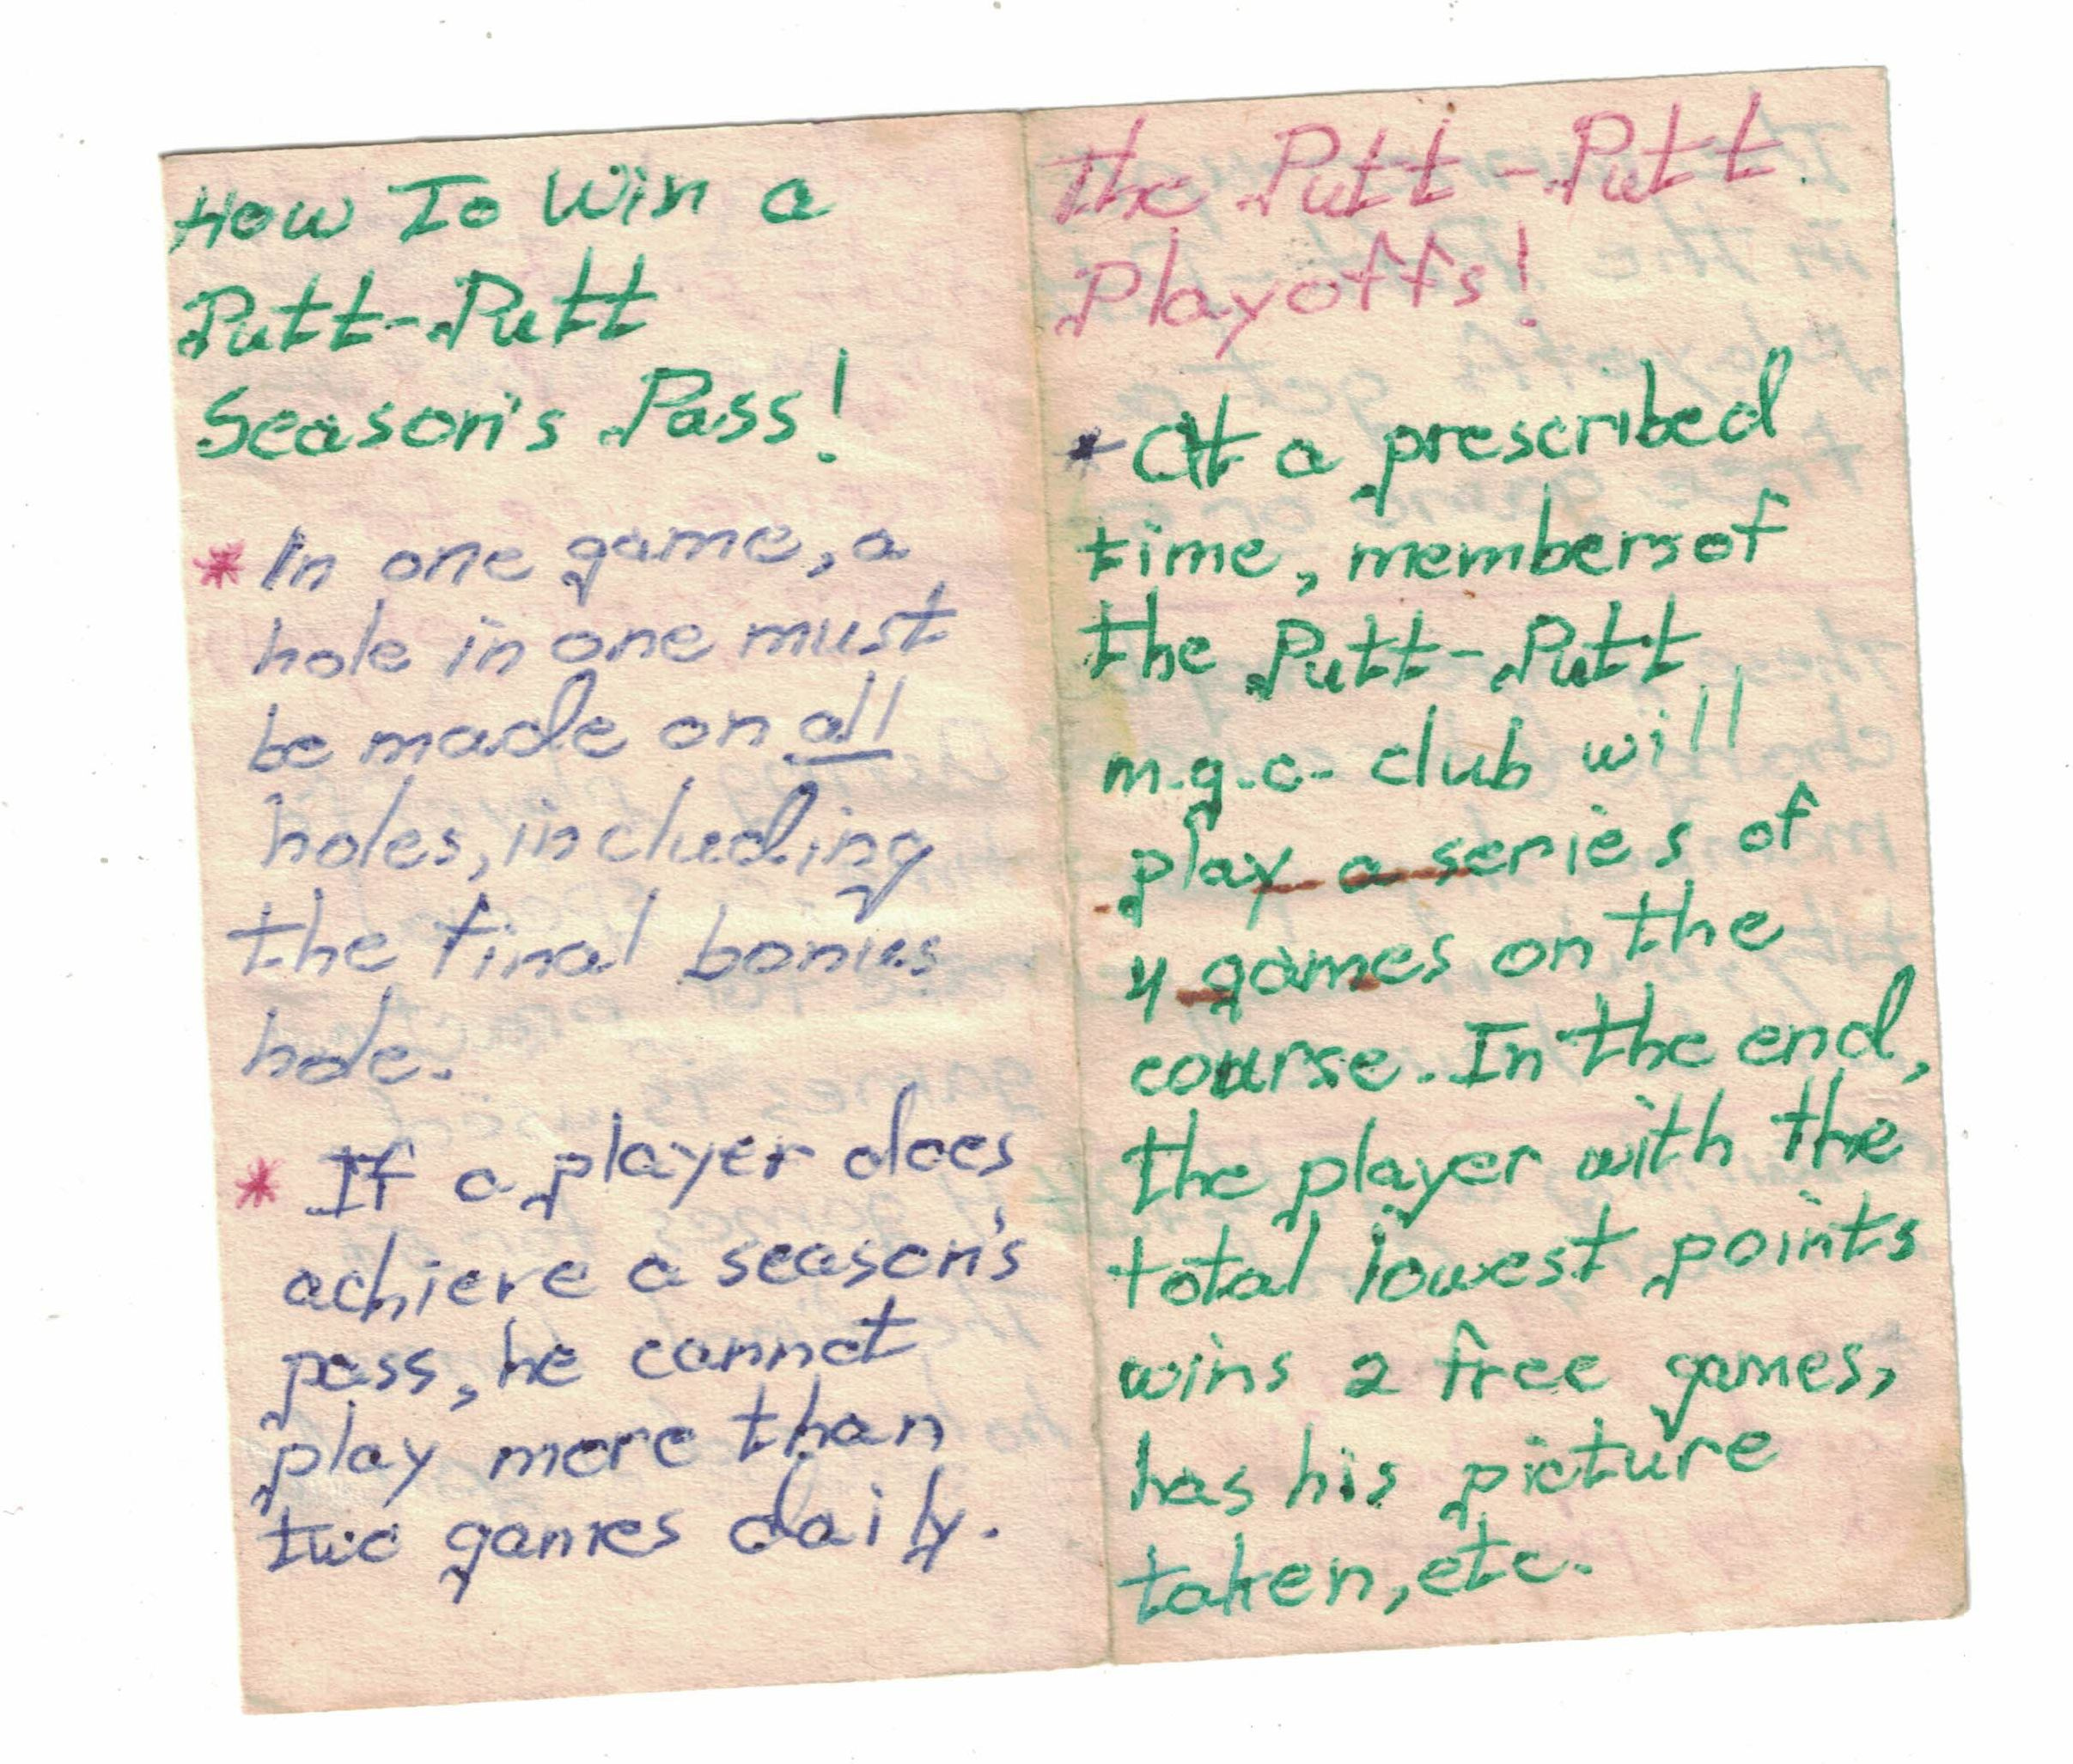 How To Win a
Putt-Putt
Season's Pass!
* In one game, a
hole in one must
be made on all
holes, including
the final bonus
hole.
* If a player does
achieve a season's
pass, he cannot
play more than
two games daily.
The Putt-Putt
Playoffs!
* At a prescribed
time, members of
the Putt-Putt
m.g.c. club will
play a series of
4 games on the
course. In the end,
the player with the
total lowest points
wins 2 free games,
has his picture
taken, etc.